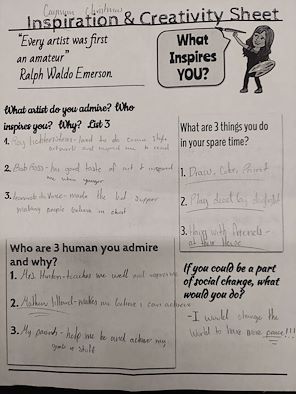 Inspiration & Creativity Sheet
"Every artist was first
an amateur"
Ralph Waldo Emerson.
What
Inspires
YOU?
What artist do you admire? Who
inspires you? Why? List 3
1. Roy Lichtenstein - love to do comic style
artwork and inspired me to read
2. Bob Ross - his good taste of art + inspired
me when younger
3. Leonardo da Vince - made the last supper
making people believe in christ
What are 3 things you do
in your spare time?
1. Draw, Color, Paint
2. Play dead by daylight
3. Hang with friends -
at their house
Who are 3 human you admire
and why?
1. Mrs. - teaches me well and
2. - makes me believe i can achieve
3. My parents - help me be and achieve my
goals of stuff
If you could be a part
of social change, what
would you do?
- I would change the
World to have more peace!!!